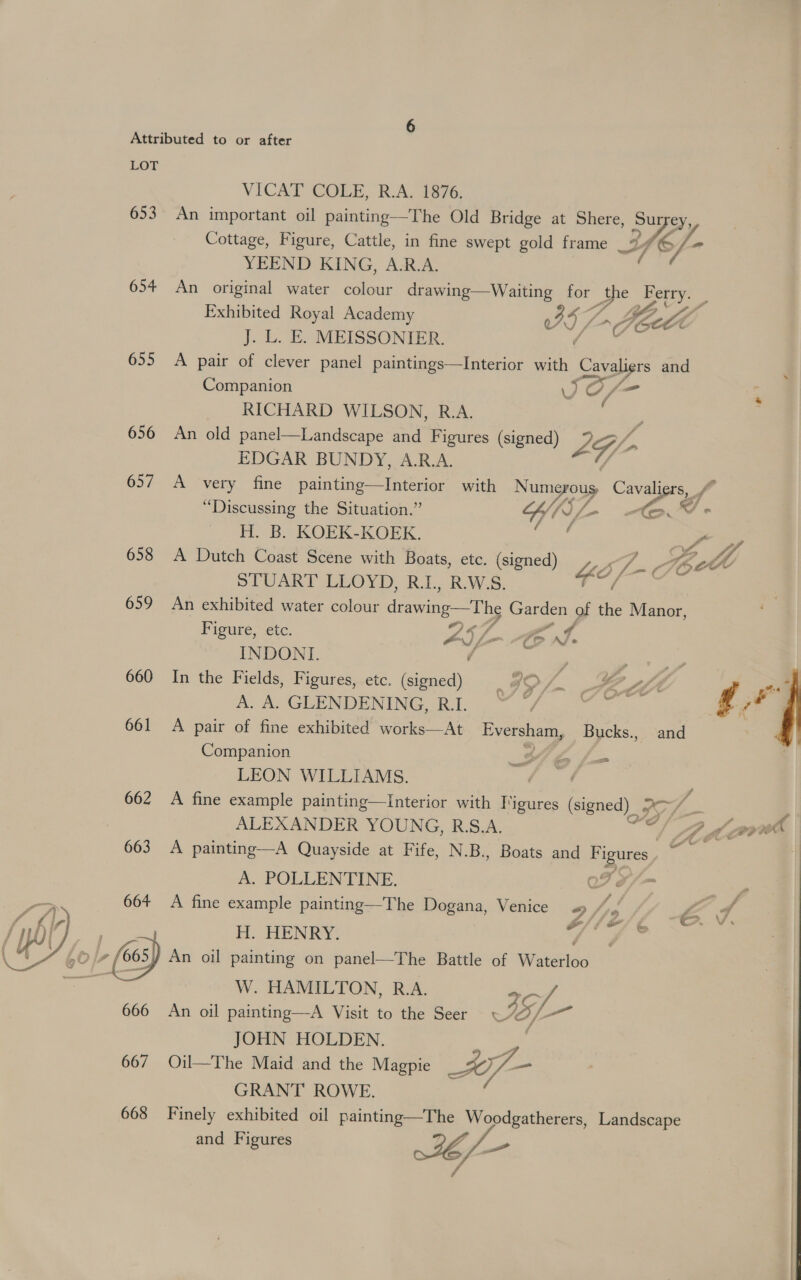 6
Attributed to or after
LOT
VICAT COLE, R.A. 1876.
653 An important oil painting—The Old Bridge at Shere, Surrey,
Cottage, Figure, Cattle, in fine swept gold frame
YEEND KING, A.R.A.
654 An original water colour drawing—Waiting for the Ferry.
Exhibited Royal Academy 35/- Hell
J. L. E. MEISSONIER.
655 A pair of clever panel paintings—Interior with Cavaliers and
Companion 50/-
RICHARD WILSON, R.A.
656 An old panel—Landscape and Figures (signed)
EDGAR BUNDY, A.R.A.
657 A very fine painting—Interior with Numerous Cavaliers,
“Discussing the Situation.”
H. B. KOEK-KOEK.
658 A Dutch Coast Scene with Boats, etc. (signed)
STUART LLOYD, R.I., R.W.S.
659 An exhibited water colour drawing—The Garden of the Manor,
Figure, etc. 25/-
INDONI.
660 In the Fields, Figures, etc. (signed)
A. A. GLENDENING, R.I.
661 A pair of fine exhibited works—At Eversham, Bucks., and
Companion
LEON WILLIAMS.
662 A fine example painting—Interior with Figures (signed)
ALEXANDER YOUNG, R.S.A.
663 A painting—A Quayside at Fife, N.B., Boats and Figures
A. POLLENTINE.
664 A fine example painting—The Dogana, Venice
H. HENRY.
60/- 665 An oil painting on panel—The Battle of Waterloo
W. HAMILTON, R.A.
666 An oil painting—A Visit to the Seer
JOHN HOLDEN.
667 Oil—The Maid and the Magpie 30/-
GRANT ROWE.
668 Finely exhibited oil painting—The Woodgatherers, Landscape
and Figures